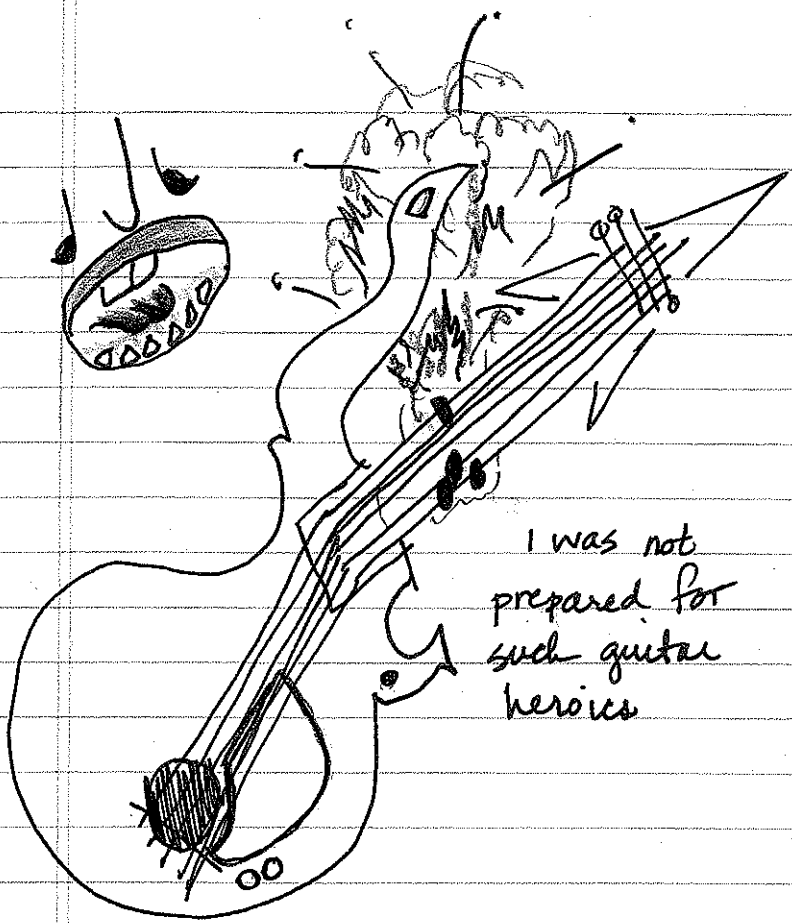 I was not
prepared for
such guitar
heroics